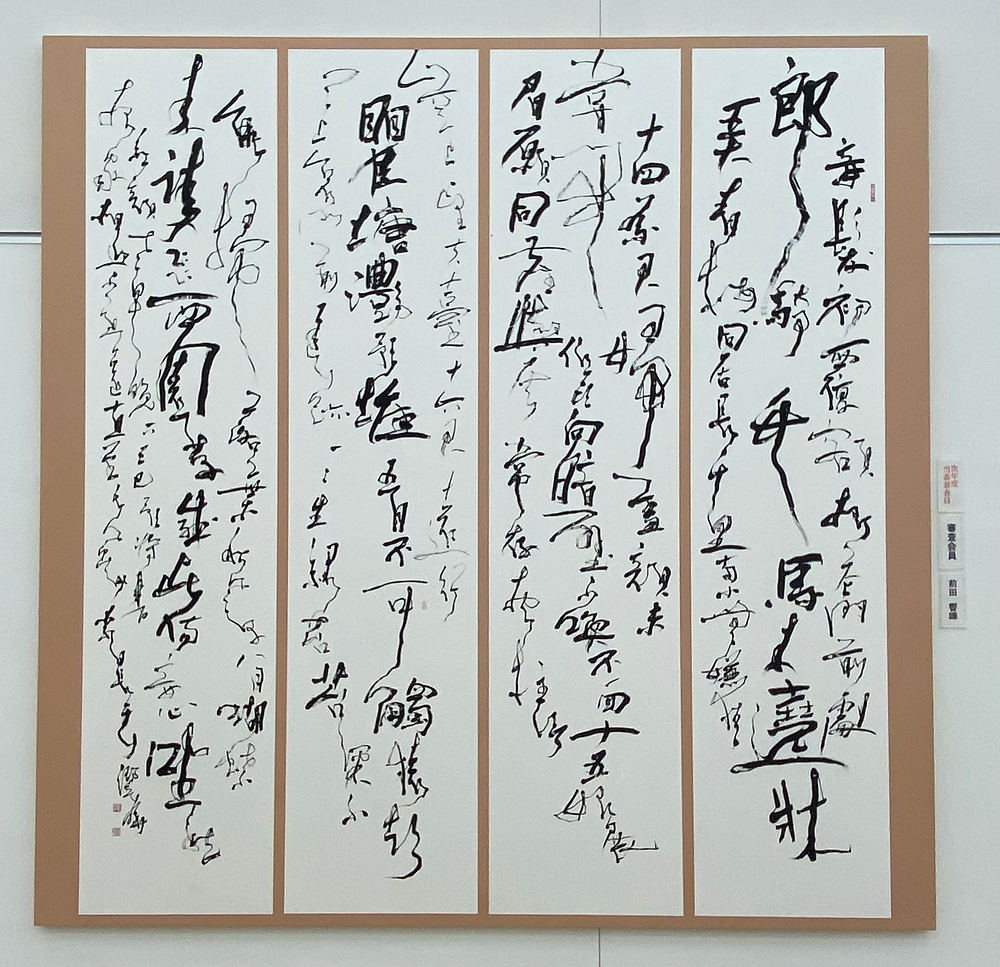 妾髪初覆額折花門前劇
郎騎竹馬来遶牀
弄青梅同居長干里両小無嫌猜
十四為君婦羞顔未
嘗開低頭向暗壁千喚不一回十五始展
眉願同塵与灰常存抱柱信
上望夫臺十六君遠行
瞿塘灩澦堆五月不可觸猿聲
天上哀門前遅行跡一一生緑苔苔深不
能掃落葉秋風早八月蝴蝶
来雙飛西園草感此傷妾心坐愁
紅顔老早晩下三巴預将書
報家相迎不道遠直至長風沙
次年度
当番審査員
審査会員
前田